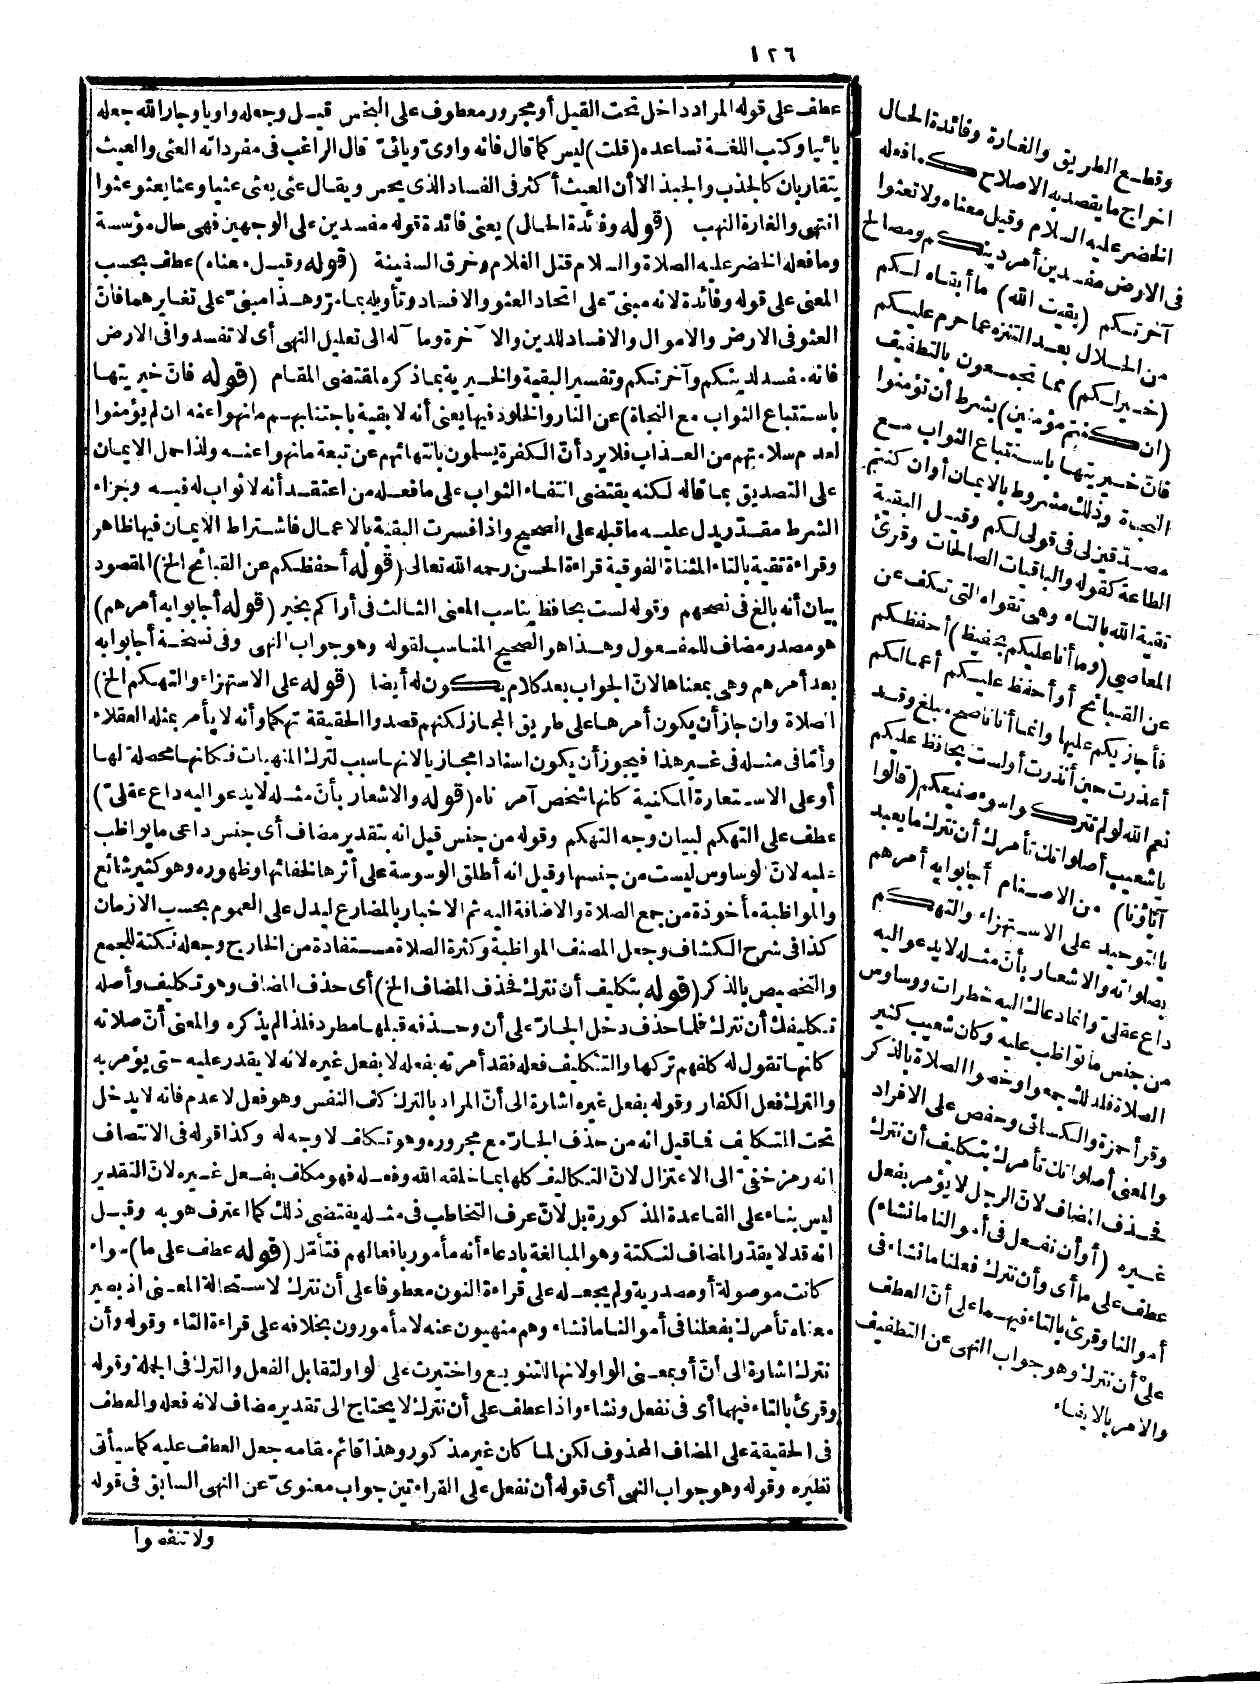 ١٢٦
عطف على قوله المراد داخل تحت القيل أو مجرور معطوف على البخس قيل وجعله واويا وجار الله جعله
يائيا وكتب اللغة تساعده (قلت) ليس كما قال فانه واوىّ ويائىّ قال الراغب فى مفرداته العثى والعيث
يتقاربان كالجذب والجبذ الا أن العيث أكثر فى الفساد الذى يحس ويقال عثى يعثى عثيا وعثا يعثو عثوا
انتهى والغارة النهب (قوله وفائدة الحال) يعنى فائدة قوله مفسدين على الوجهين فهى حال مؤسسة
وما فعله الخضر عليه الصلاة والسلام قتل الغلام وخرق السفينة (قوله وقيل معناه) عطف بحسب
المعنى على قوله وفائدة لانه مبنىّ على اتحاد العثو والافساد وتأويله بما مرّ وهذا مبنىّ على تغايرهما فانّ
العثو فى الارض والاموال والافساد للدين والآخرة وماآله الى تعليل النهى أى لا تفسدوا فى الارض
فانه مفسد لدينكم وآخرتكم وتفسير البقية والخيرية بما ذكره لمقتضى المقام (قوله فانّ خيريتها
باستتباع الثواب مع النجاة) عن النار والخلود فيها يعنى أنه لا بقية باجتنابهم ما نهوا عنه ان لم يؤمنوا
لعدم سلامتهم من العذاب فلا يرد أنّ الكفرة يسلمون بانتهائهم عن تبعة ما نهوا عنه ولذا حمل الايمان
على التصديق بما قاله لكنه يقتضى انتفاء الثواب على ما فعله من اعتقد أنه لا ثواب له فيه وجزاء
الشرط مقدّر يدل عليه ما قبله على الصحيح واذا فسرت البقية بالاعمال فاشتراط الايمان فيها ظاهر
وقراءة تقية بالتاء المثناة الفوقية قراءة الحسن رحمه الله تعالى (قوله أحفظكم عن القبائح الخ) المقصود
بيان أنه بالغ فى نصحهم وقوله لست بحافظ يناسب المعنى الثالث فى أراكم بخير (قوله أجابوا به أمرهم)
هو مصدر مضاف للمفعول وهذا هو الصحيح المناسب لقوله وهو جواب النهى وفى نسخة أجابوا به
بعد أمرهم وهى بمعناها لانّ الجواب بعد كلام يكون له أيضا (قوله على الاستهزاء والتهكم الخ)
الصلاة وان جاز أن يكون أمرها على طريق المجاز لكنهم قصدوا الحقيقة تهكما وأنه لا يأمر بمثله العقلاء
وأمّا فى مثله فى غير هذا فيجوز أن يكون اسنادا مجازيا لانها سبب لترك المنهيات فكانها محصلة لها
أو على الاستعارة المكنية كانها شخص آمر ناه (قوله والاشعار بأنّ مثله لا يدعو اليه داع عقلىّ)
عطف على التهكم لبيان وجه التهكم وقوله من جنس قيل انه بتقدير مضاف أى جنس داعى ما يواظب
عليه لانّ الوساوس ليست من جنسها وقيل انه أطلق الوسوسة على أثرها لخفائها وظهوره وهو كثير شائع
والمواظبة مأخوذة من جمع الصلاة والاضافة اليه ثم الاخبار بالمضارع ليدل على العموم بحسب الازمان
كذا فى شرح الكشاف وجعل المصنف المواظبة وكثرة الصلاة مستفادة من الخارج وجعله نكتة للجمع
والتخصيص بالذكر (قوله بتكليف أن نترك فحذف المضاف الخ) أى حذف المضاف وهو تكليف وأصله
تكليفك أن نترك فلما حذف دخل الجارّ على أن وحذفه قبلها مطرد فلذا لم يذكره والمعنى أنّ صلاته
كانها تقول له كلفهم تركها والتكليف فعله فقد أمرته بفعله لا بفعل غيره لانه لا يقدر عليه حتى يؤمر به
والترك فعل الكفار وقوله بفعل غيره اشارة الى أنّ المراد بالترك كف النفس وهو فعل لا عدم فانه لا يدخل
تحت التكليف فما قيل انه من حذف الجارّ مع مجروره وهو تكلف لا وجه له وكذا قوله فى الانتصاف
انه رمز خفىّ الى الاعتزال لانّ التكاليف كلها بما خلقه الله وفعله فهو مكلف بفعل غيره لانّ التقدير
ليس بناء على القاعدة المذكورة بل لانّ عرف التخاطب فى مثله يقتضى ذلك كما اعترف هو به وقيل
انه قد لا يقدّر المضاف لنكتة وهو المبالغة بادعاء أنه مأمور بأفعالهم فتأمّل (قوله عطف على ما) سواء
كانت موصولة أو مصدرية ولم يجعله على قراءة النون معطوفا على أن نترك لاستحالة المعنى اذ يصير
معناه تأمرك بفعلنا فى أموالنا ما نشاء وهم منهيون عنه لا مأمورون بخلافه على قراءة التاء وقوله وأن
نترك اشارة الى أنّ أو بمعنى الواو لانها للتنويع واختيرت على الواو لتقابل الفعل والترك فى الجملة وقوله
وقرئ بالتاء فيهما أى فى نفعل ونشاء واذا عطف على أن نترك لا يحتاج الى تقدير مضاف لانه فعله والعطف
فى الحقيقة على المضاف المحذوف لكن لما كان غير مذكور وهذا قائم مقامه جعل العطف عليه كما سيأتى
نظيره وقوله وهو جواب النهى أى قوله أن نفعل على القراءتين جواب معنوىّ عن النهى السابق فى قوله
وقطع الطريق والغارة وفائدة الحال
اخراج ما يقصد به الاصلاح كما فعله
الخضر عليه السلام وقيل معناه ولا تعثوا
فى الارض مفسدين أمر دينكم ومصالح
آخرتكم (بقيت الله) ما أبقاه لكم
من الحلال بعد التنزه عما حرم عليكم
(خير لكم) مما تجمعون بالتطفيف
(ان كنتم مؤمنين) بشرط أن تؤمنوا
فانّ خيريتها باستتباع الثواب مع
النجاة وذلك مشروط بالايمان أو ان كنتم
مصدقين لى فى قولى لكم وقيل البقية
الطاعة كقوله والباقيات الصالحات وقرئ
تقية الله بالتاء وهى تقواه التى تكف عن
المعاصى (وما أنا عليكم بحفيظ) أحفظكم
عن القبائح أو أحفظ عليكم أعمالكم
فأجازيكم عليها وانما أنا ناصح مبلغ وقد
أعذرت حين أنذرت أو لست بحافظ عليكم
نعم الله لو لم تتركوا سوء صنيعكم (قالوا
يا شعيب أصلواتك تأمرك أن نترك ما يعبد
آباؤنا) من الاصنام أجابوا به أمرهم
بالتوحيد على الاستهزاء والتهكم
بصلواته والاشعار بأنّ مثله لا يدعو اليه
داع عقلىّ وانما دعاك اليه خطرات ووساوس
من جنس ما تواظب عليه وكان شعيب كثير
الصلاة فلذلك جمعوا وخصوا الصلاة بالذكر
وقرأ حمزة والكسائى وحفص على الافراد
والمعنى أصلواتك تأمرك بتكليف أن نترك
فحذف المضاف لانّ الرجل لا يؤمر بفعل
غيره (أو أن نفعل فى أموالنا ما نشاء)
عطف على ما أى وأن نترك فعلنا ما نشاء فى
أموالنا وقرئ بالتاء فيهما على أنّ العطف
على أن نترك وهو جواب النهى عن التطفيف
والامر بالايفاء
ولا تنقصوا